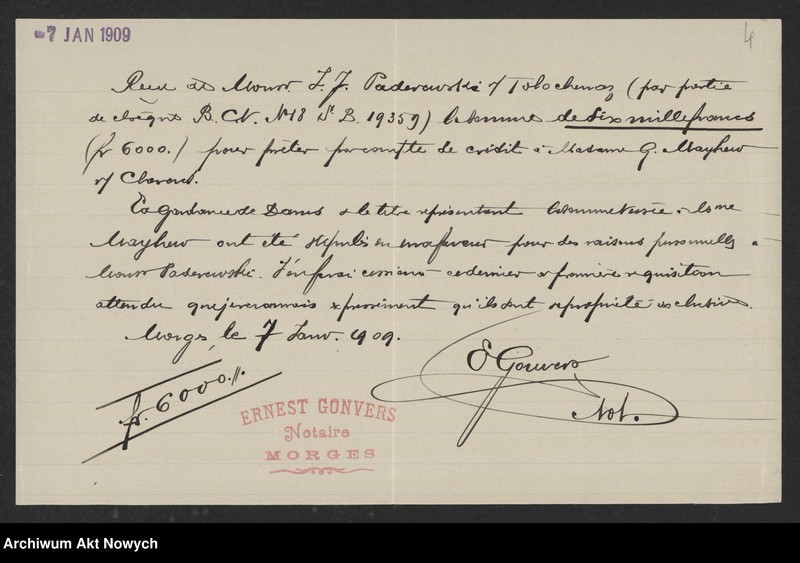 -7 JAN 1909
4
Reçu de Monsr I. J. Paderewski s/ Tolochenaz (par partie
de chèque B.C.V. No 18 St B. 19359) la somme de Six mille francs
(fr 6000.) pour prêter par compte de crédit à Madame G. Mayhew
s/ Clarens.
La gardance de Dams & le titre représentant la somme versée à Mme
Mayhew ont été stipulés en ma faveur pour des raisons personnelles à
Monsr Paderewski. J'en ferai cession à ce dernier à première réquisition
attendu que je reconnais expressément qu'ils sont sa propriété exclusive.
Morges, le 7 Janv. 1909.
fr. 6000.//.
E Gonvers
Not.
ERNEST GONVERS
Notaire
MORGES
Archiwum Akt Nowych